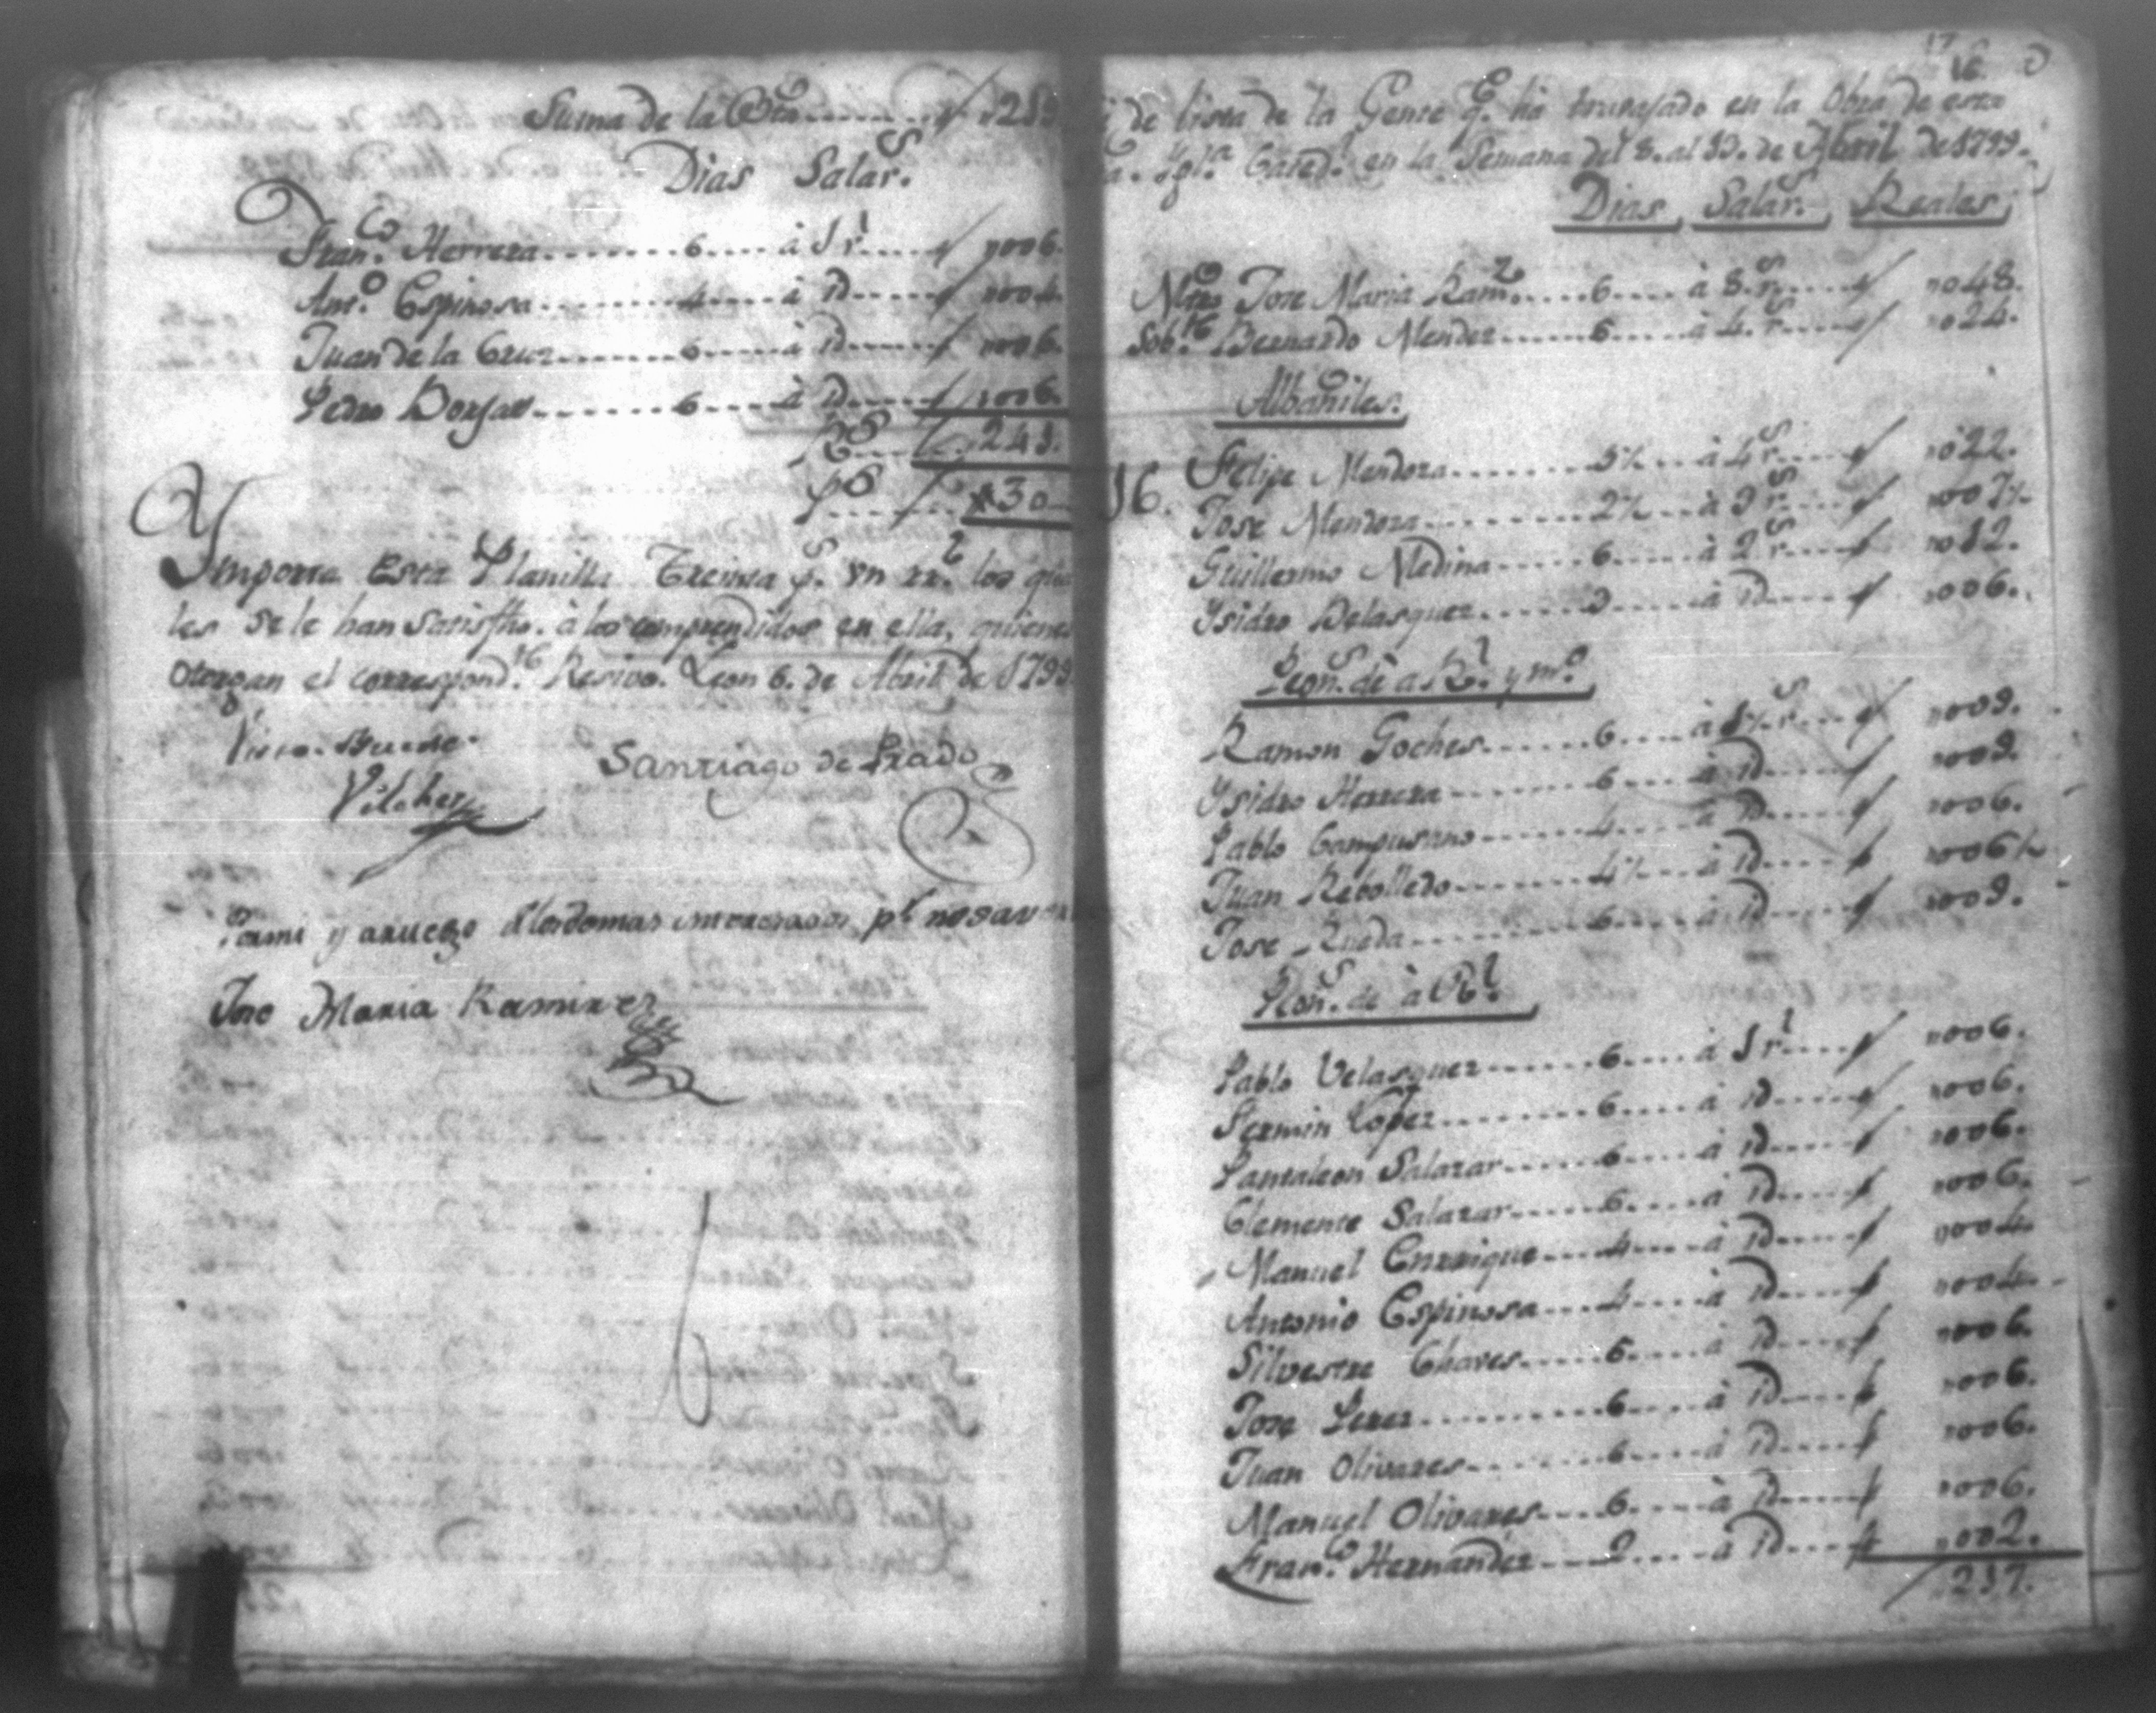 Suma de la Bta........ 219
Dias Salar.s
Fran.co Herrera........6....à 1 r.l.... 006.
Ant.o Espinosa........4....à id.... 004.
Juan de la Cruz........6....à id.... 006.
Pedro Borjas........6....à id.... 006.
R.s.... 241.
p.s.... 30
Ymporta Esta Planilla Treinta p.s un rr.l los qua
les se le han satisfho. à los comprendidos en ella, quienes
otorgan el correspond.te Resivo. Leon 6. de Abril de 1799
Visto. Bueno.
Vilchez
Santiago de Prado
Pormi y aruego de los demas interesados pr. no saver
Jose Maria Ramirez
17
16
de lista de la Gente q.e ha travajado en la Obra de esta
Sta. Ygl.a Cated.l en la Semana del 8. al 13. de Abril de 1799.
Dias, Salar.s, Reales,
Mtro Jose Maria Ram.z....6....à 8. r.s.... 048.
Sob.te Bernardo Mendez....6....à 4. r.s.... 024.
Albañiles.
16.
Felipe Mendoza........5½....à 4 r.s.... 022.
Jose Mendoza........2½....à 3 r.s.... 007½
Guillermo Medina....6....à 2 r.s.... 012.
Ysidro Belasquez....3....à id.... 006.
Peon.s de a R.l y m.o
Ramon Goches........6....à 1½ r.s.... 009.
Ysidro Herrera........6....à id.... 009.
Pablo Campusano....4....à id.... 006.
Juan Rebolledo........4½....à id.... 006½
Jose Rueda........6....à id.... 009.
Peon.s de à R.l
Pablo Velasquez........6....à 1 r.l.... 006.
Fermin Lopez........6....à id.... 006.
Pantaleon Salazar....6....à id.... 006.
Clemente Salazar....6....à id.... 006.
Manuel Enrrique....4....à id.... 004.
Antonio Espinosa....4....à id.... 004.
Silvestre Chaves....6....à id.... 006.
Jose Perez........6....à id.... 006.
Juan Olivares........6....à id.... 006.
Manuel Olivares....6....à id.... 006.
Fran.co Hernandez....2....à id.... 002.
217.